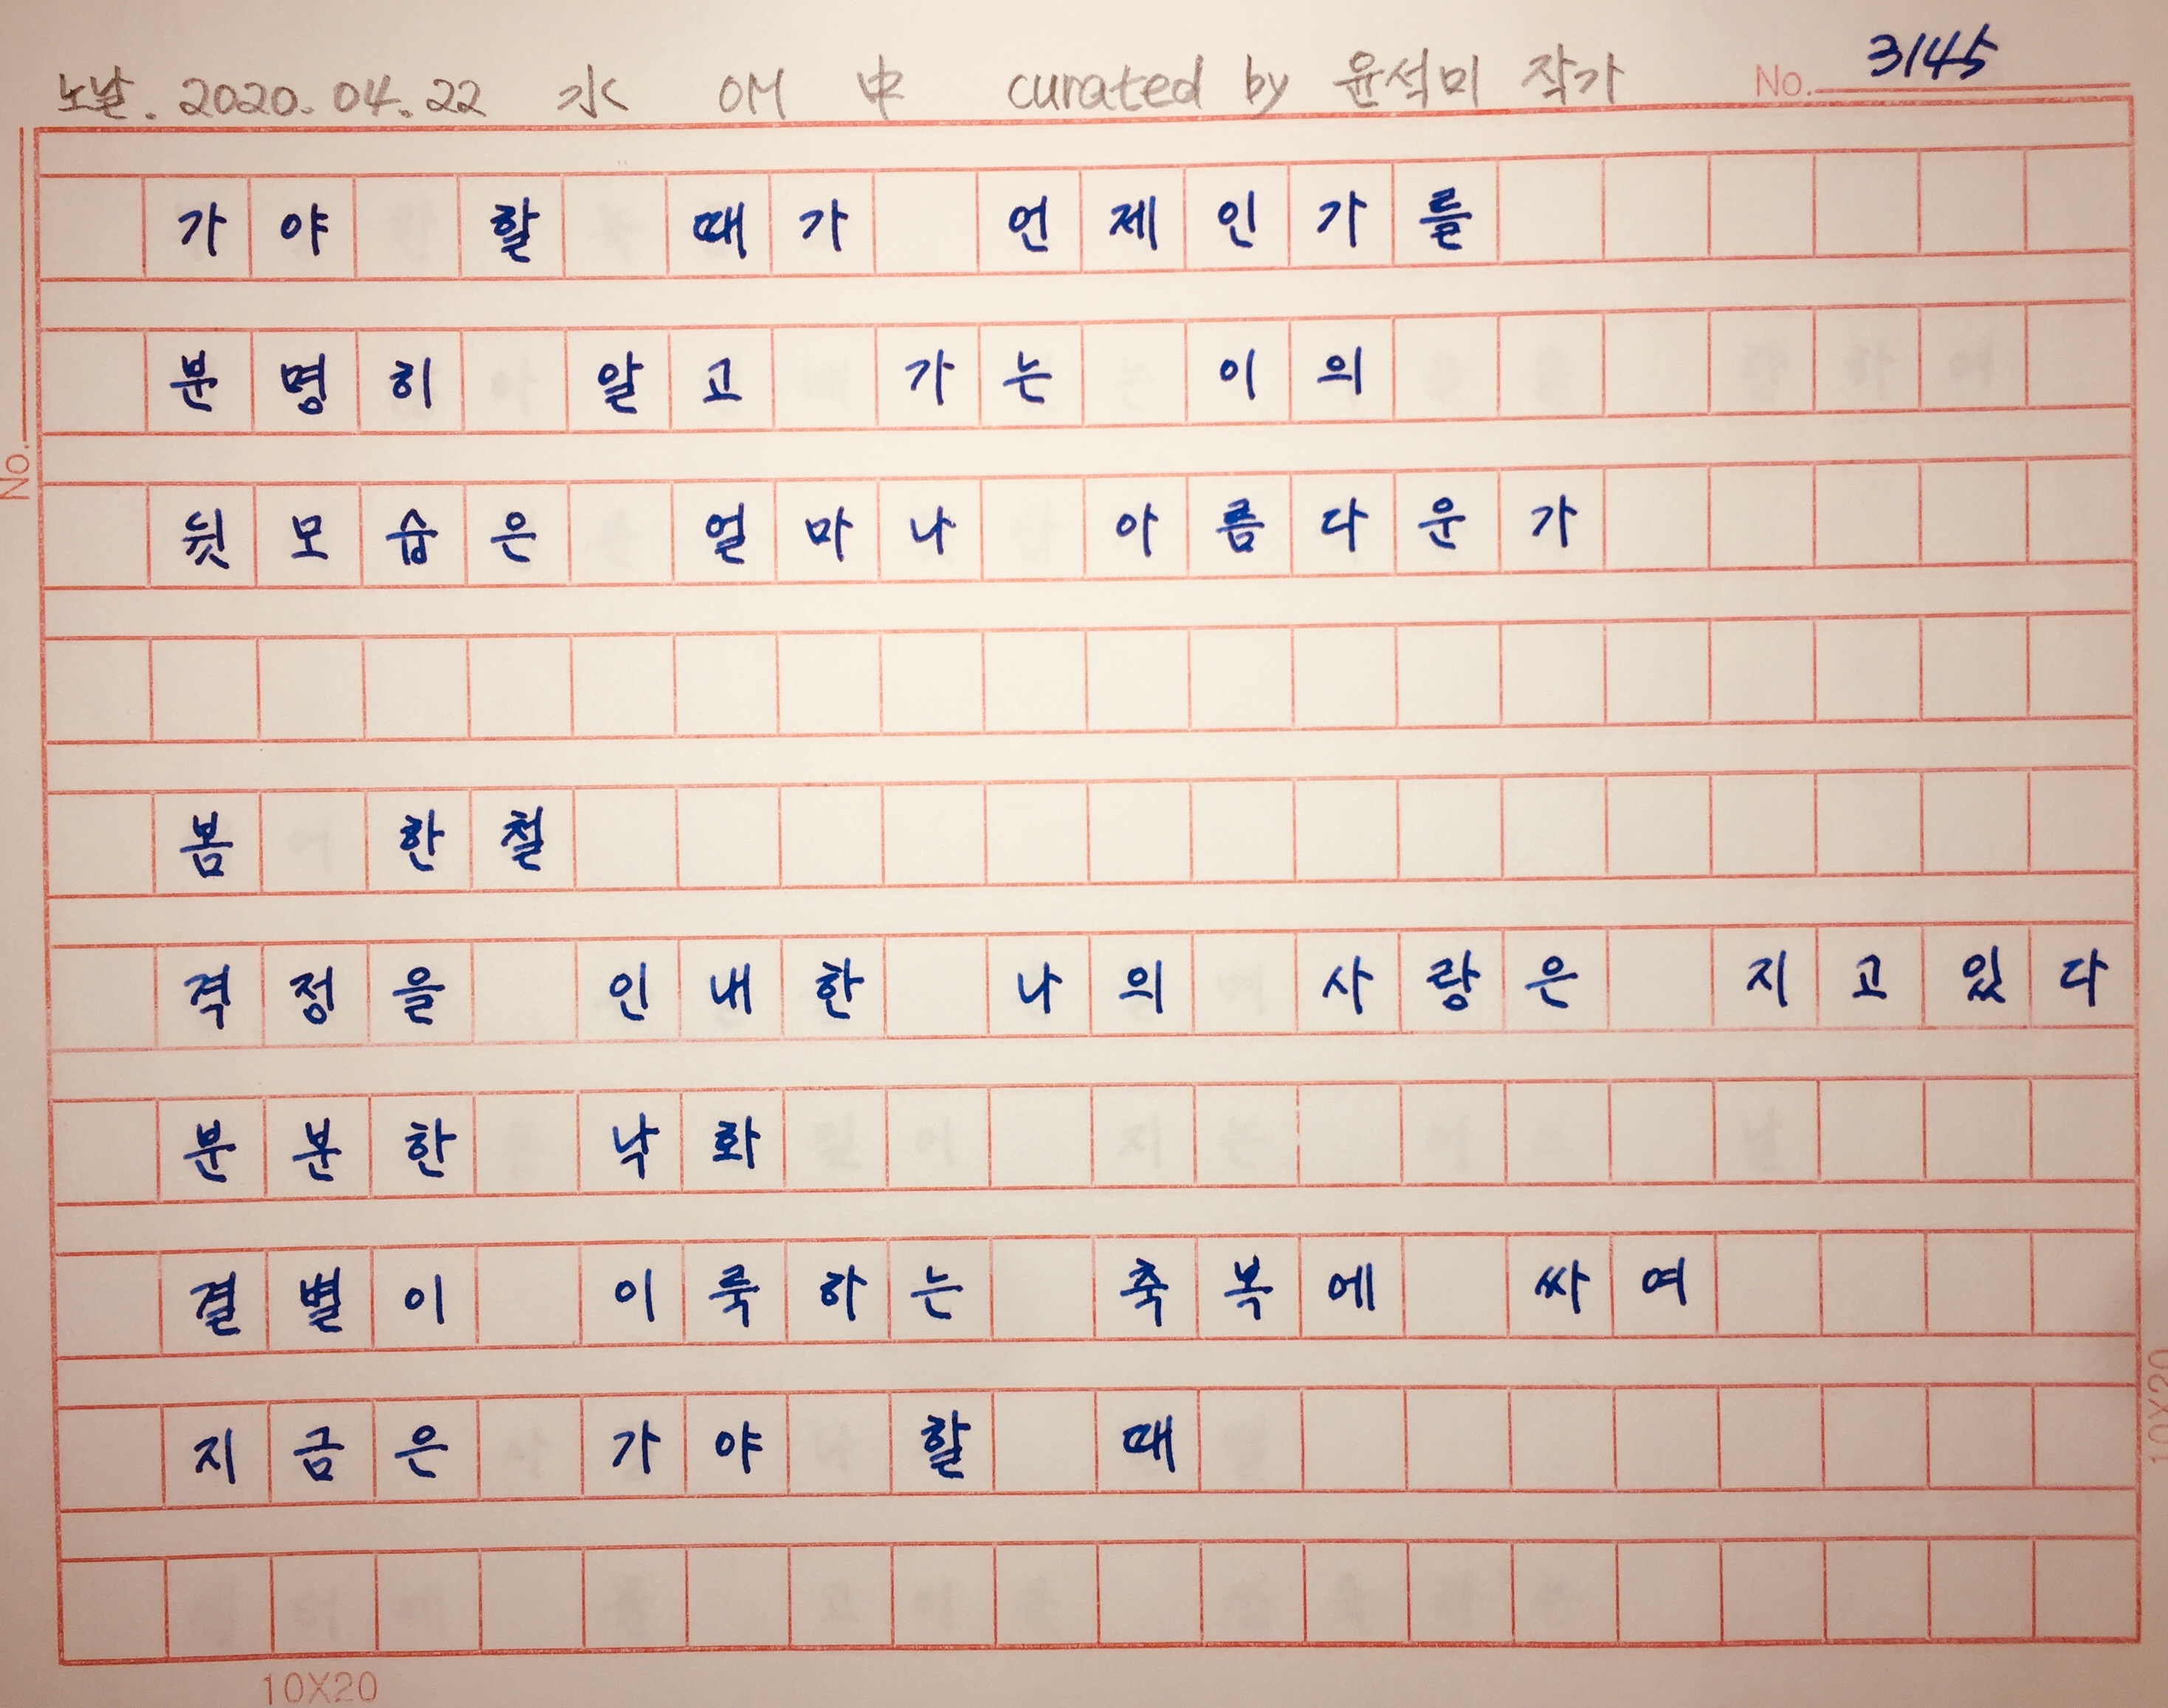 노날. 2020. 04. 22 水 OM 中 curated by 윤석미 작가 No. 3145
가야 할 때가 언제인가를
분명히 알고 가는 이의
뒷모습은 얼마나 아름다운가
봄 한철
격정을 인내한 나의 사랑은 지고있다
분분한 낙화
결별이 이룩하는 축복에 싸여
지금은 가야 할 때
No.
10X20
10X20